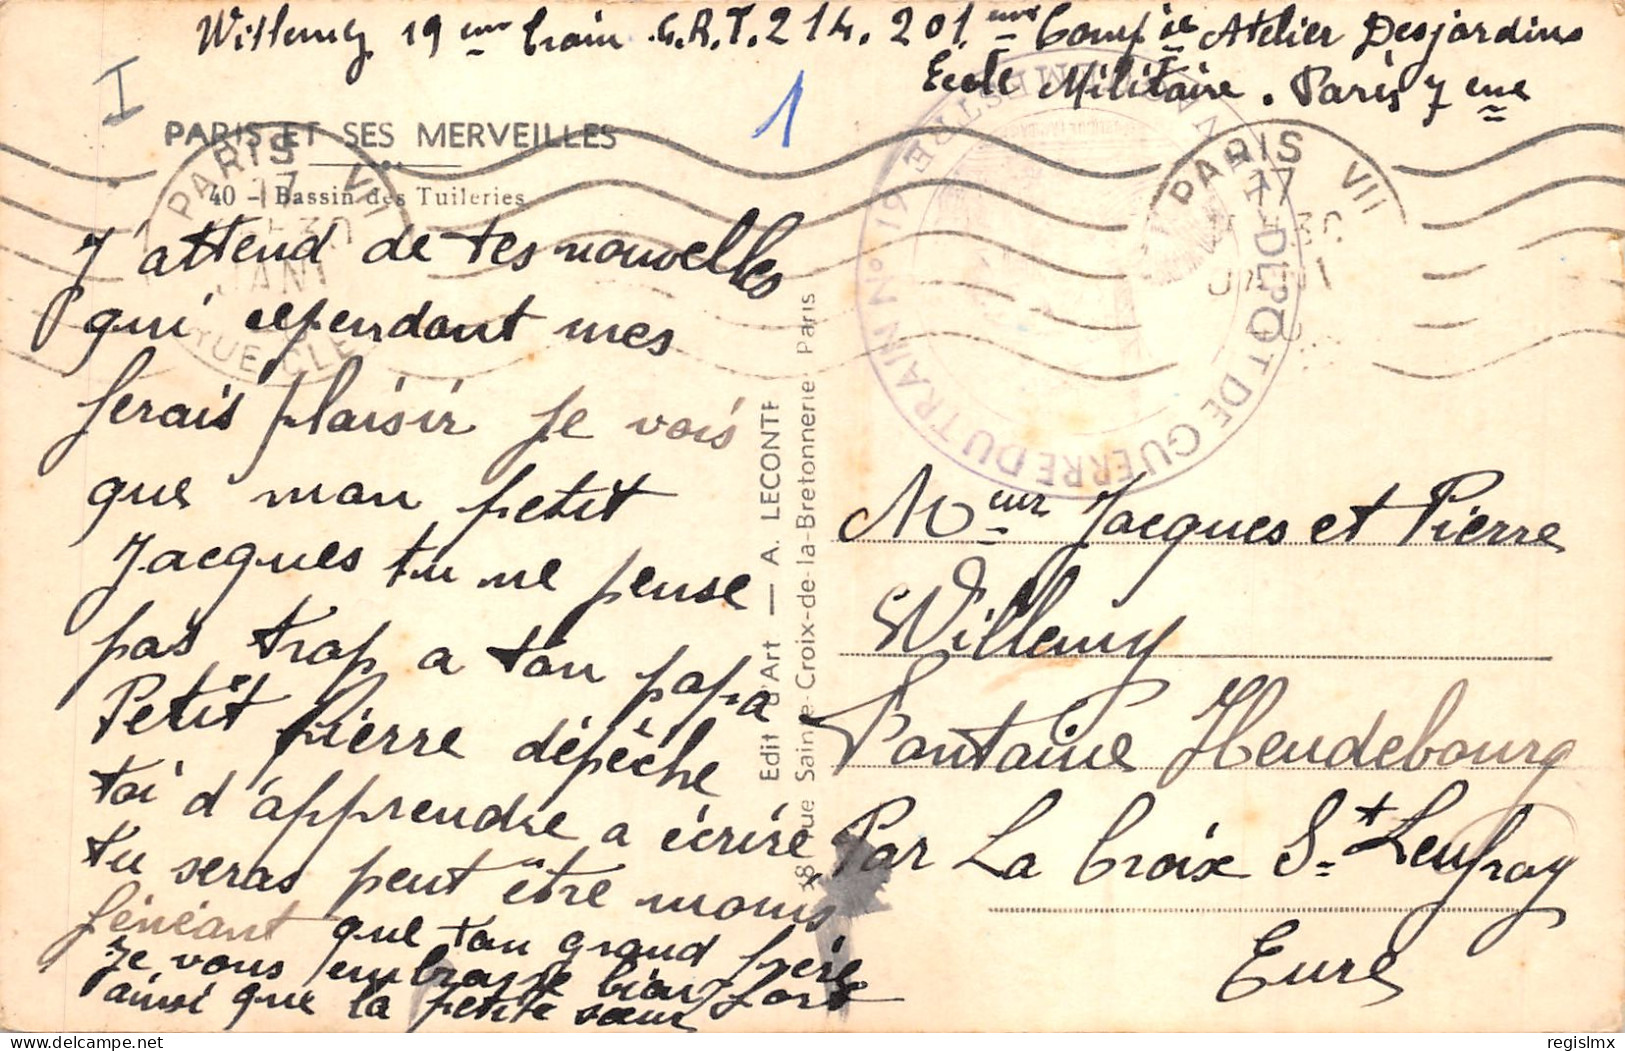 Willemy 19 eme Train G.R.T. 214. 201. eme Comp ie Atelier Desjardins
Ecole Militaire. Paris 7 eme
I
1
PARIS ET SES MERVEILLES
40 - Bassin des Tuileries
J'attend de tes nouvelles
qui cependant mes
ferais plaisir je vois
que mon petit
Jacques tu ne pense
pas trop a ton papa
Petit Pierre dépêche
toi d'apprendre a écrire
tu seras peut être moins
fénéant que ton grand frère
Je vous embrasse bien fort
ainsi que la petite sœur
Edit d'Art — A. LECONTE
38 rue Sainte-Croix-de-la-Bretonnerie Paris
PARIS VII
17
30
JANV
RUE CLE
PARIS VII
17
30
DÉPOT DE GUERRE DU TRAIN N° 19
Meur Jacques et Pierre
Willemy
Fontaine Heudebourg
Par La Croix St Leufroy
Eure
regislmx